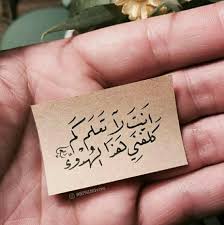 انتَ لا تَعلَم كَم
كلّفَني هَذا الهدوُء